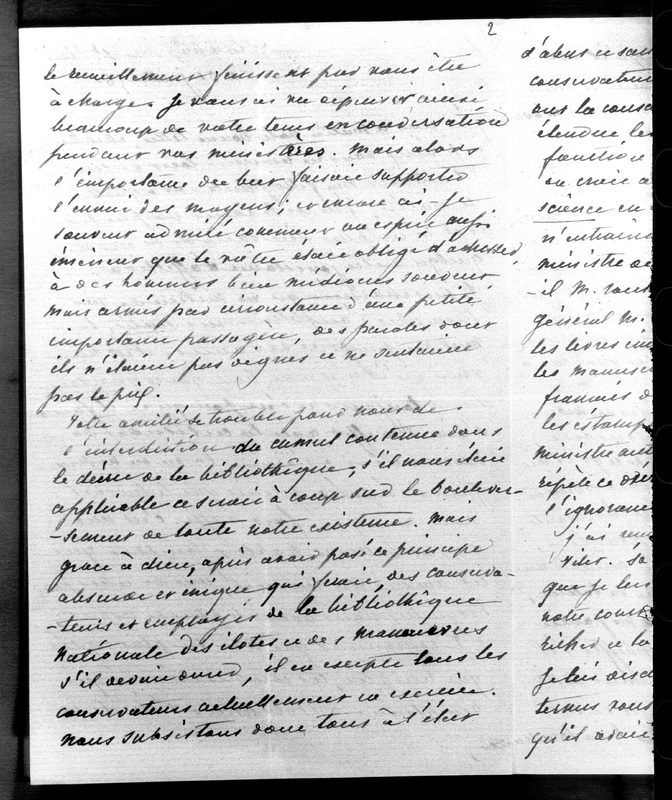 2
le recueillement finissent par vous être
à charge. Je vous ai vu dépenser ainsi
beaucoup de votre tems en conversation
pendant vos ministères. Mais alors
l'importance du but faisait supporter
l'ennui des moyens; et encore ai-je
souvent admiré comment un esprit aussi
éminent que le vôtre était obligé d'adresser
à des hommes bien médiocres souvent
mais armés par circonstance d'une petite
importance passagère, des paroles dont
ils n'étaient pas dignes et ne sentaient
pas le prix.
Votre amitié se trouble pour nous de
l'interdiction du cumul contenue dans
le décret de la bibliothèque; s'il nous était
applicable ce serait à coup sur le boulever-
-sement de toute notre existence. Mais
grâce à dieu, après avoir posé ce principe
absurde et inique qui ferait des conserva-
-teurs et employés de la bibliothèque
nationale des ilotes et des manœuvres
s'il devait durer, il en excepte tous les
conservateurs actuellement en exercice.
nous subsistons donc tous à l'état
d'abus
conservateur
sur la
étendue les
fonction
on croit
science en
n'entrain
ministre de
-il M.
général M.
les livres im
les manusc
français
les estamp
ministre
répète ce
l'ignoran
j'ai
que je
notre
tenus vous
qu'il avait